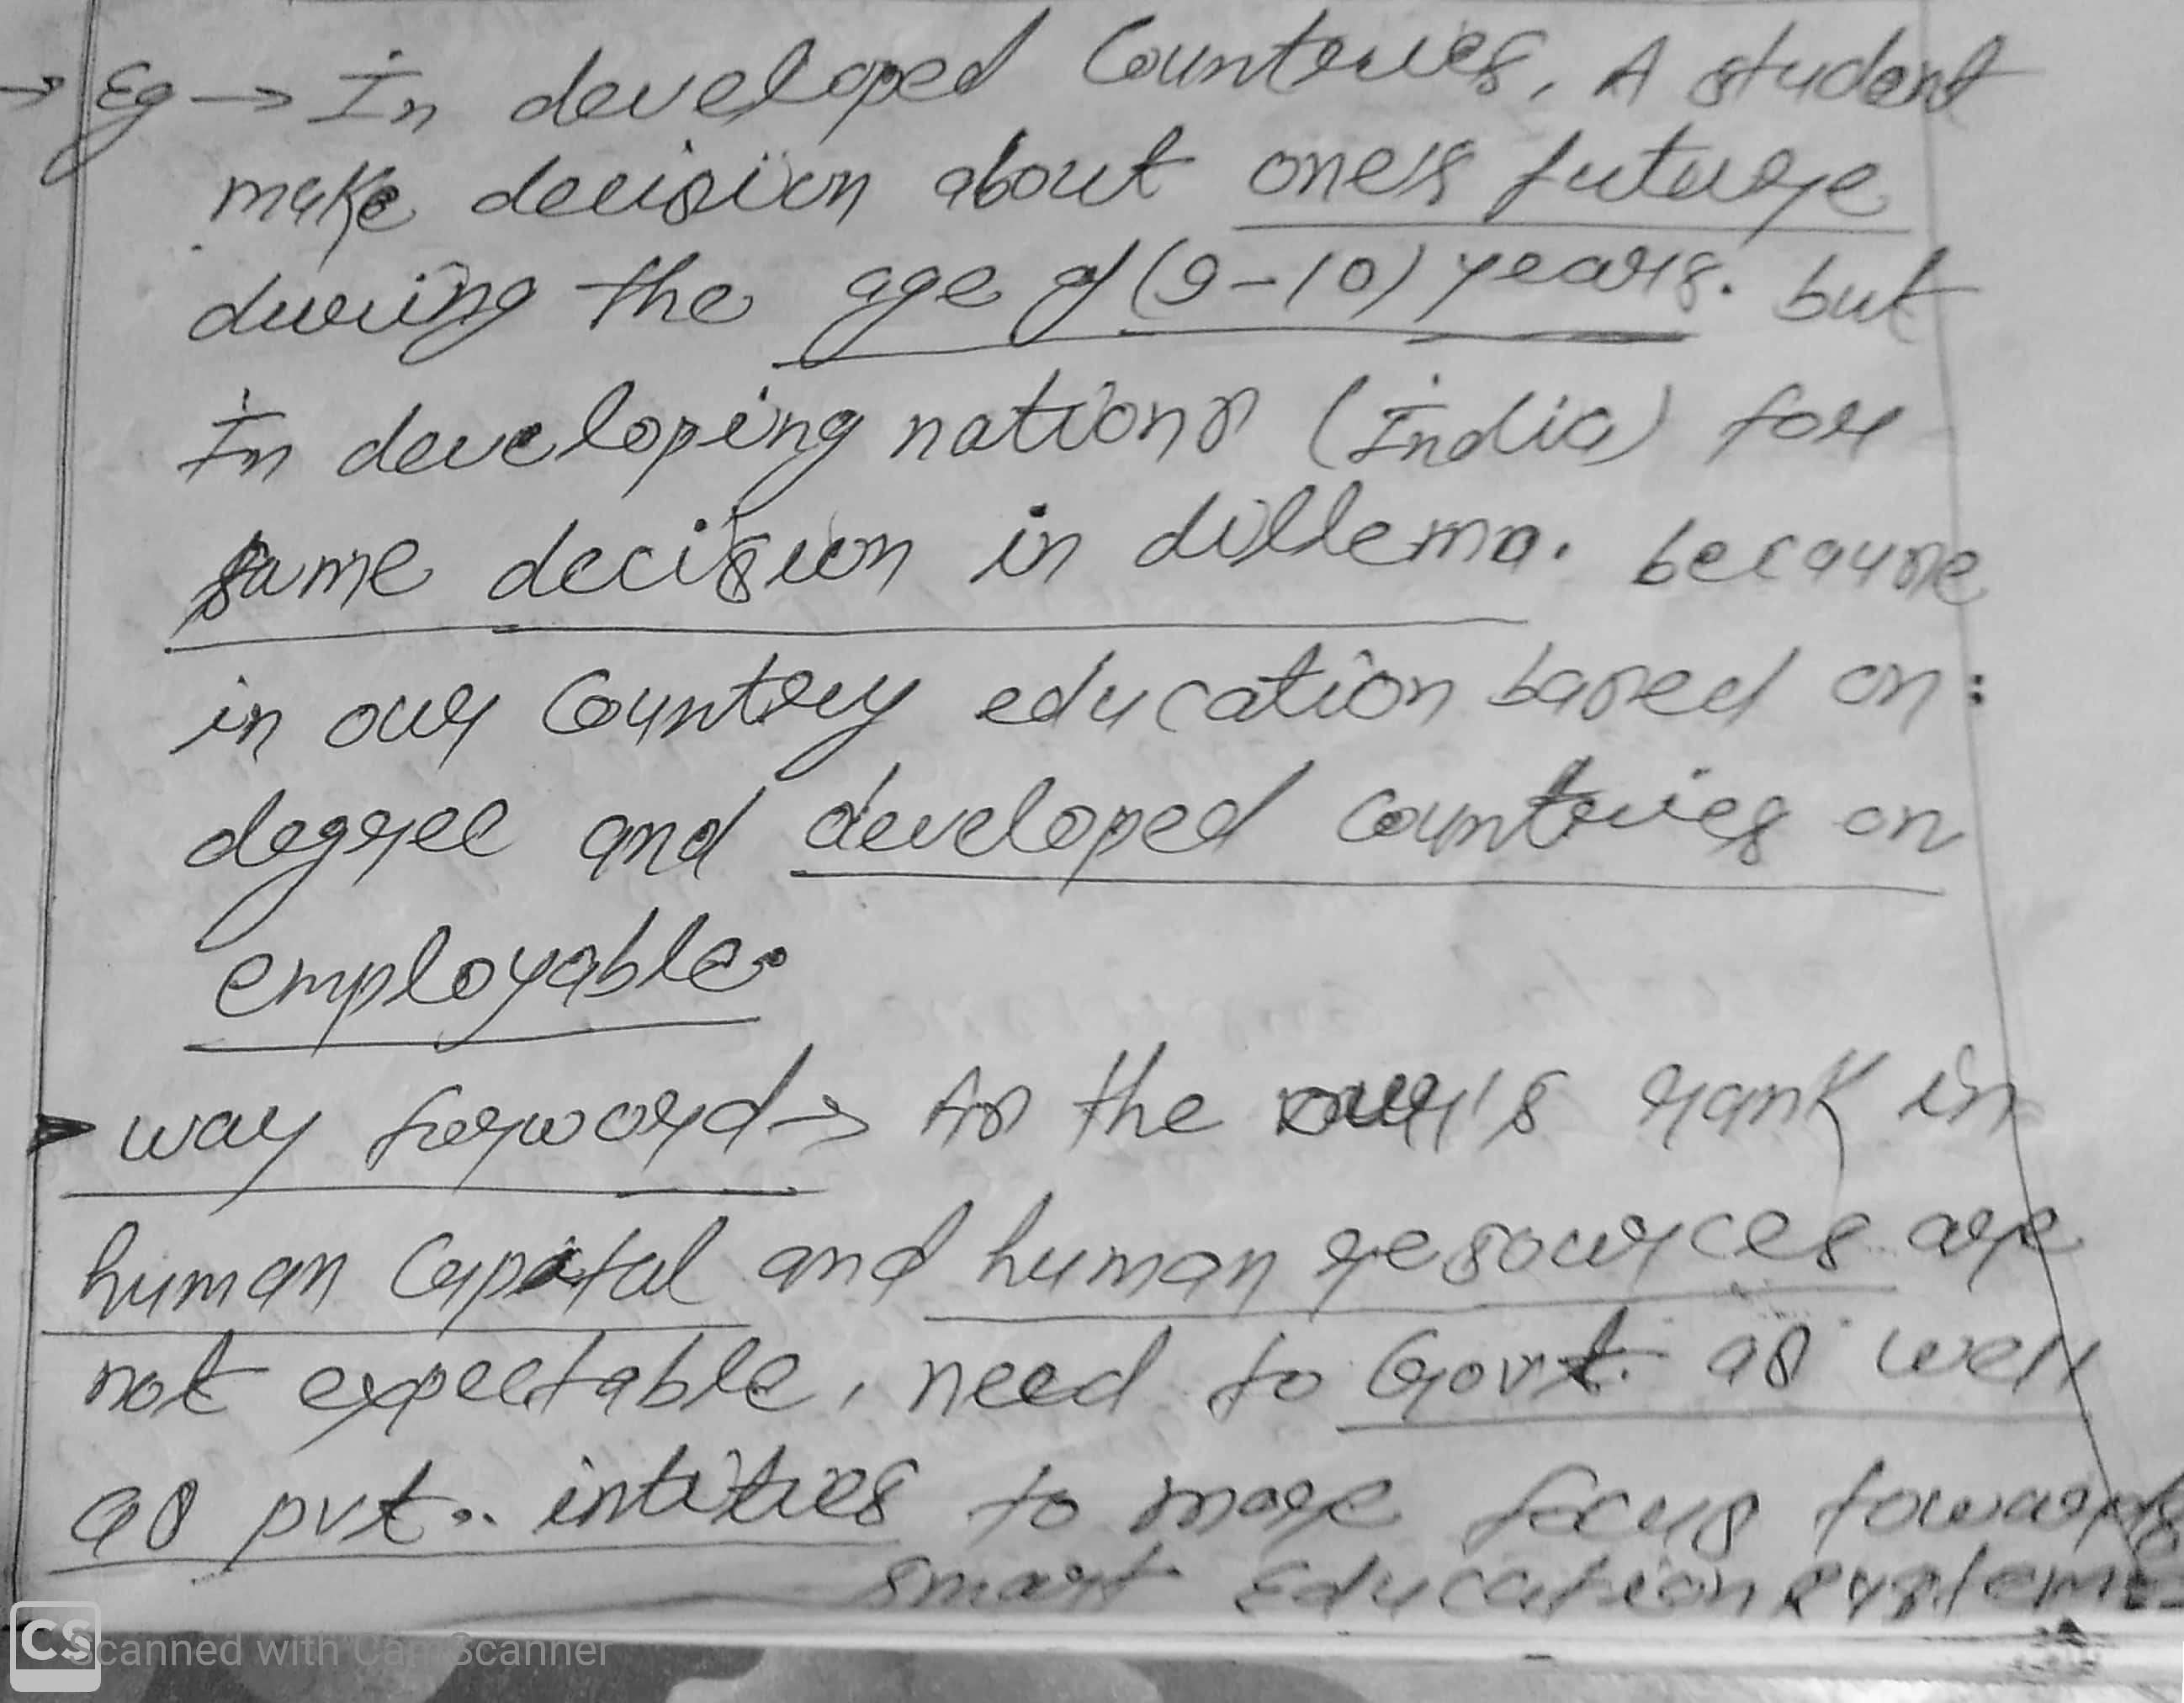 → Eg → In developed Countries, A student
make decision about one's future
during the age of (9-10) years. but
In developing nations (India) for
same decision in dillema. because
in our Country education based on:
degree and developed countries on
employable.
way forword → As the our's rank in
human Capital and human resources are
not expectable, need to Govt. as well
as pvt.. intities to more focus towards
smart Education systems
CS Scanned with CamScanner